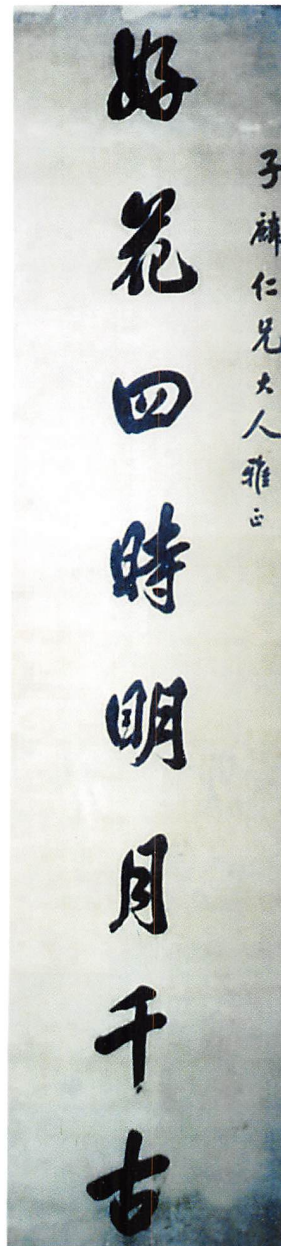 子麟仁兄大人雅正
好花四時明月千古